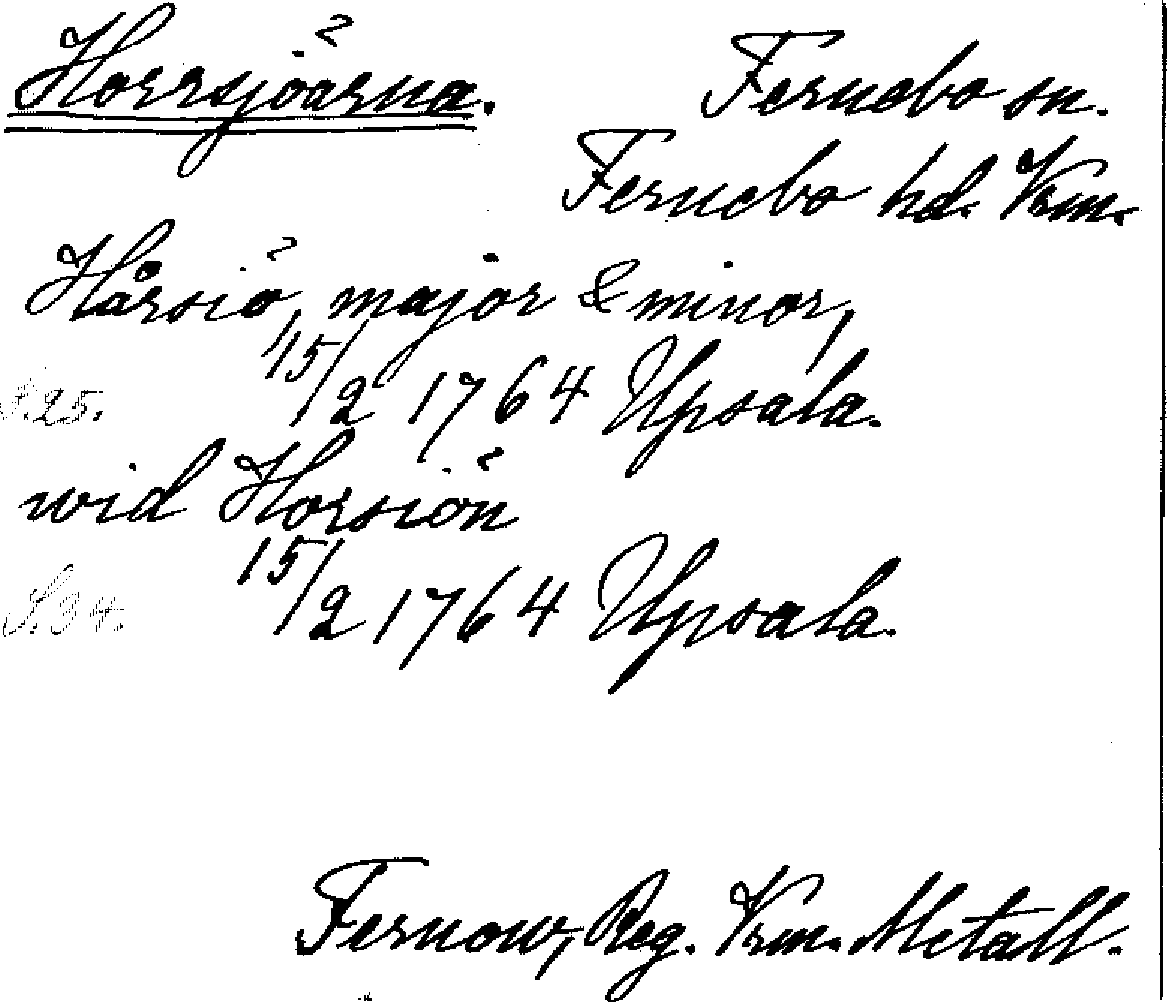 Horrsjöarna. Fernebo sn.
Fernebo hd. Vrm.
Hårsiö, major & minor,
S. 25. 15/2 1764 Upsala.
wid Horsiön
S. 34. 15/2 1764 Upsala.
Fernow, Reg. Vrm. Metall.